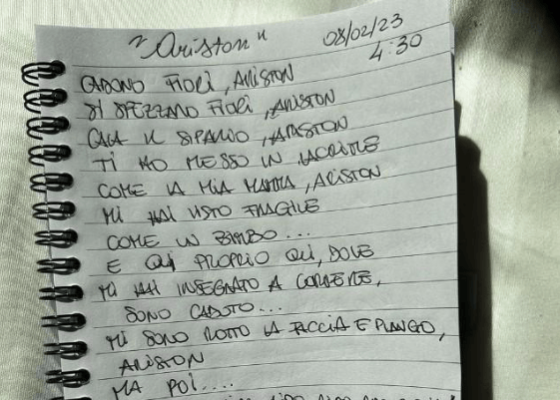 "Ariston"
08/02/23
4:30
CADONO FIORI, ARISTON
SI SPEZZANO FIORI, ARISTON
CALA IL SIPARIO, ARISTON
TI HO MESSO IN LACRIME
COME LA MIA MAMMA, ARISTON
MI HAI VISTO FRAGILE
COME UN BIMBO...
E QUI PROPRIO QUI, DOVE
MI HAI INSEGNATO A CORRERE,
SONO CADUTO...
MI SONO ROTTO LA FACCIA E PIANGO,
ARISTON
MA POI....